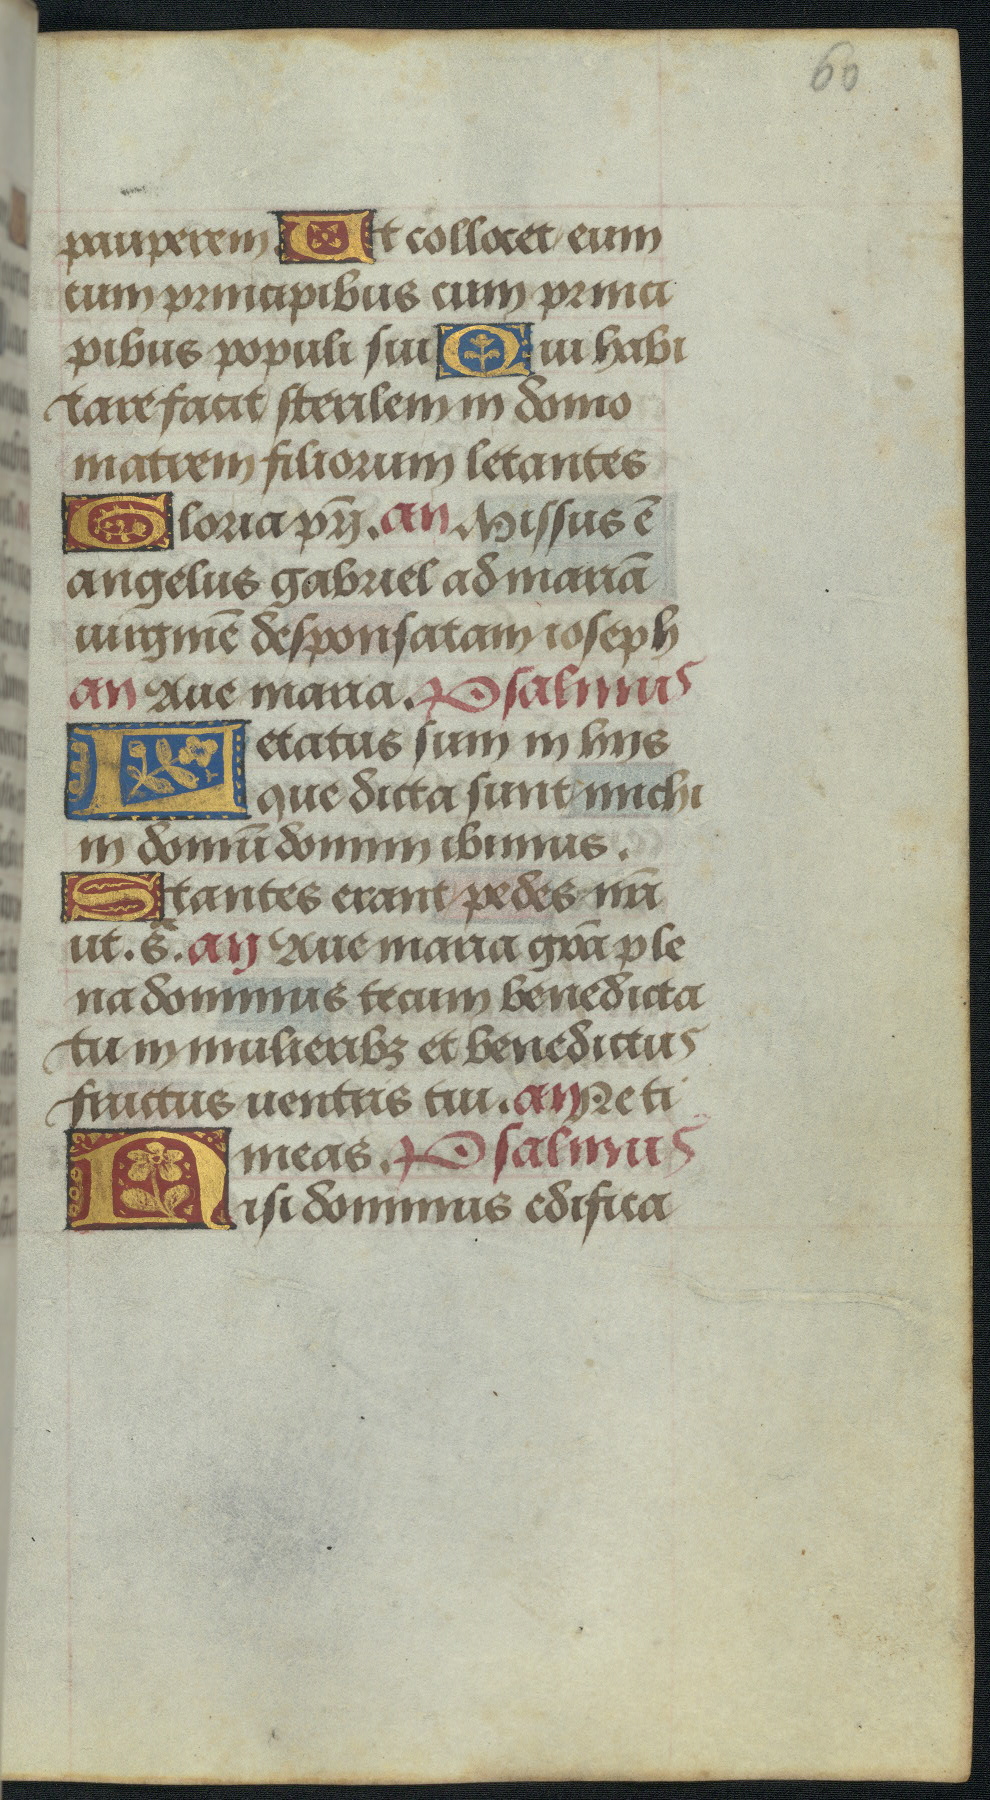 60
pauperem. Ut collocet eum
cum principibus cum princi
pibus populi sui Qui habi
tare facit sterilem in domo
matrem filiorum letantes
Gloria pr̄ý. an Missus ē
angelus gabriel ad mariā
uirginē desponsatam ioseph
an Aue maria. Psalmus
Letatus sum in hiis
que dicta sunt michi
in domū domini ibimus.
Stantes erant pedes nr̄i
ut. s̄. an Aue maria grā ple
na dominus tecum benedicta
tu in mulieribꝫ et benedictus
fructus uentris tui. an Ne ti
meas. Psalmus
Nisi dominus edifica